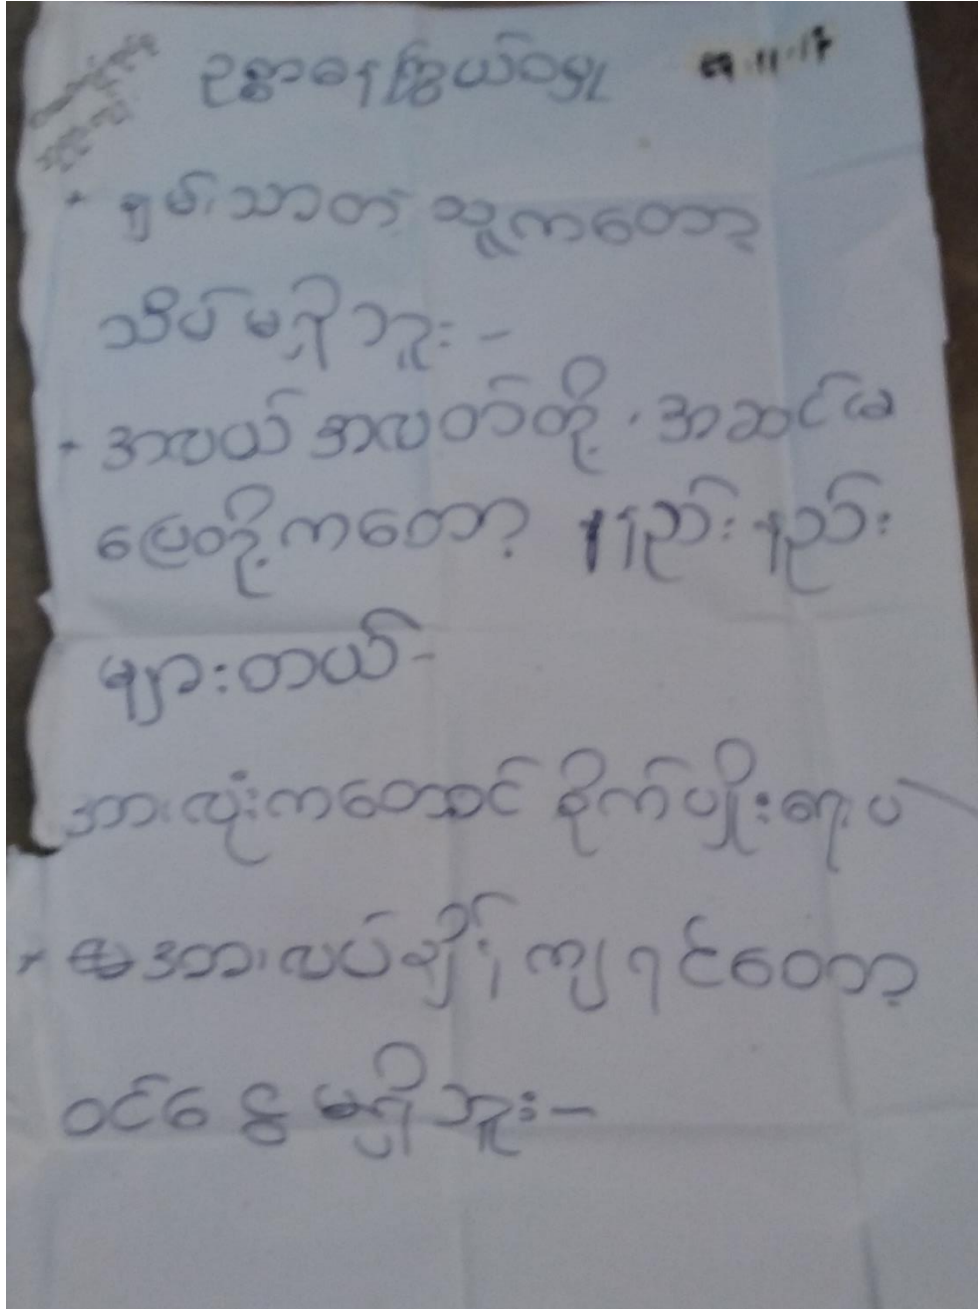 ဥစ္စာဓနကြွယ်ဝမှု
11.17
* ချမ်းသာတဲ့ သူကတော့
သိပ်မရှိဘူး -
* အလယ်အလတ်တို့ ၊ အဆင်မ
ပြေတို့ကတော့ နည်းနည်း
များတယ် -
အားလုံးကတောင် စိုက်ပျိုးရေးပဲ
* အားလပ်ချိန် ကျရင်တော့
ဝင်ငွေ မရှိဘူး -